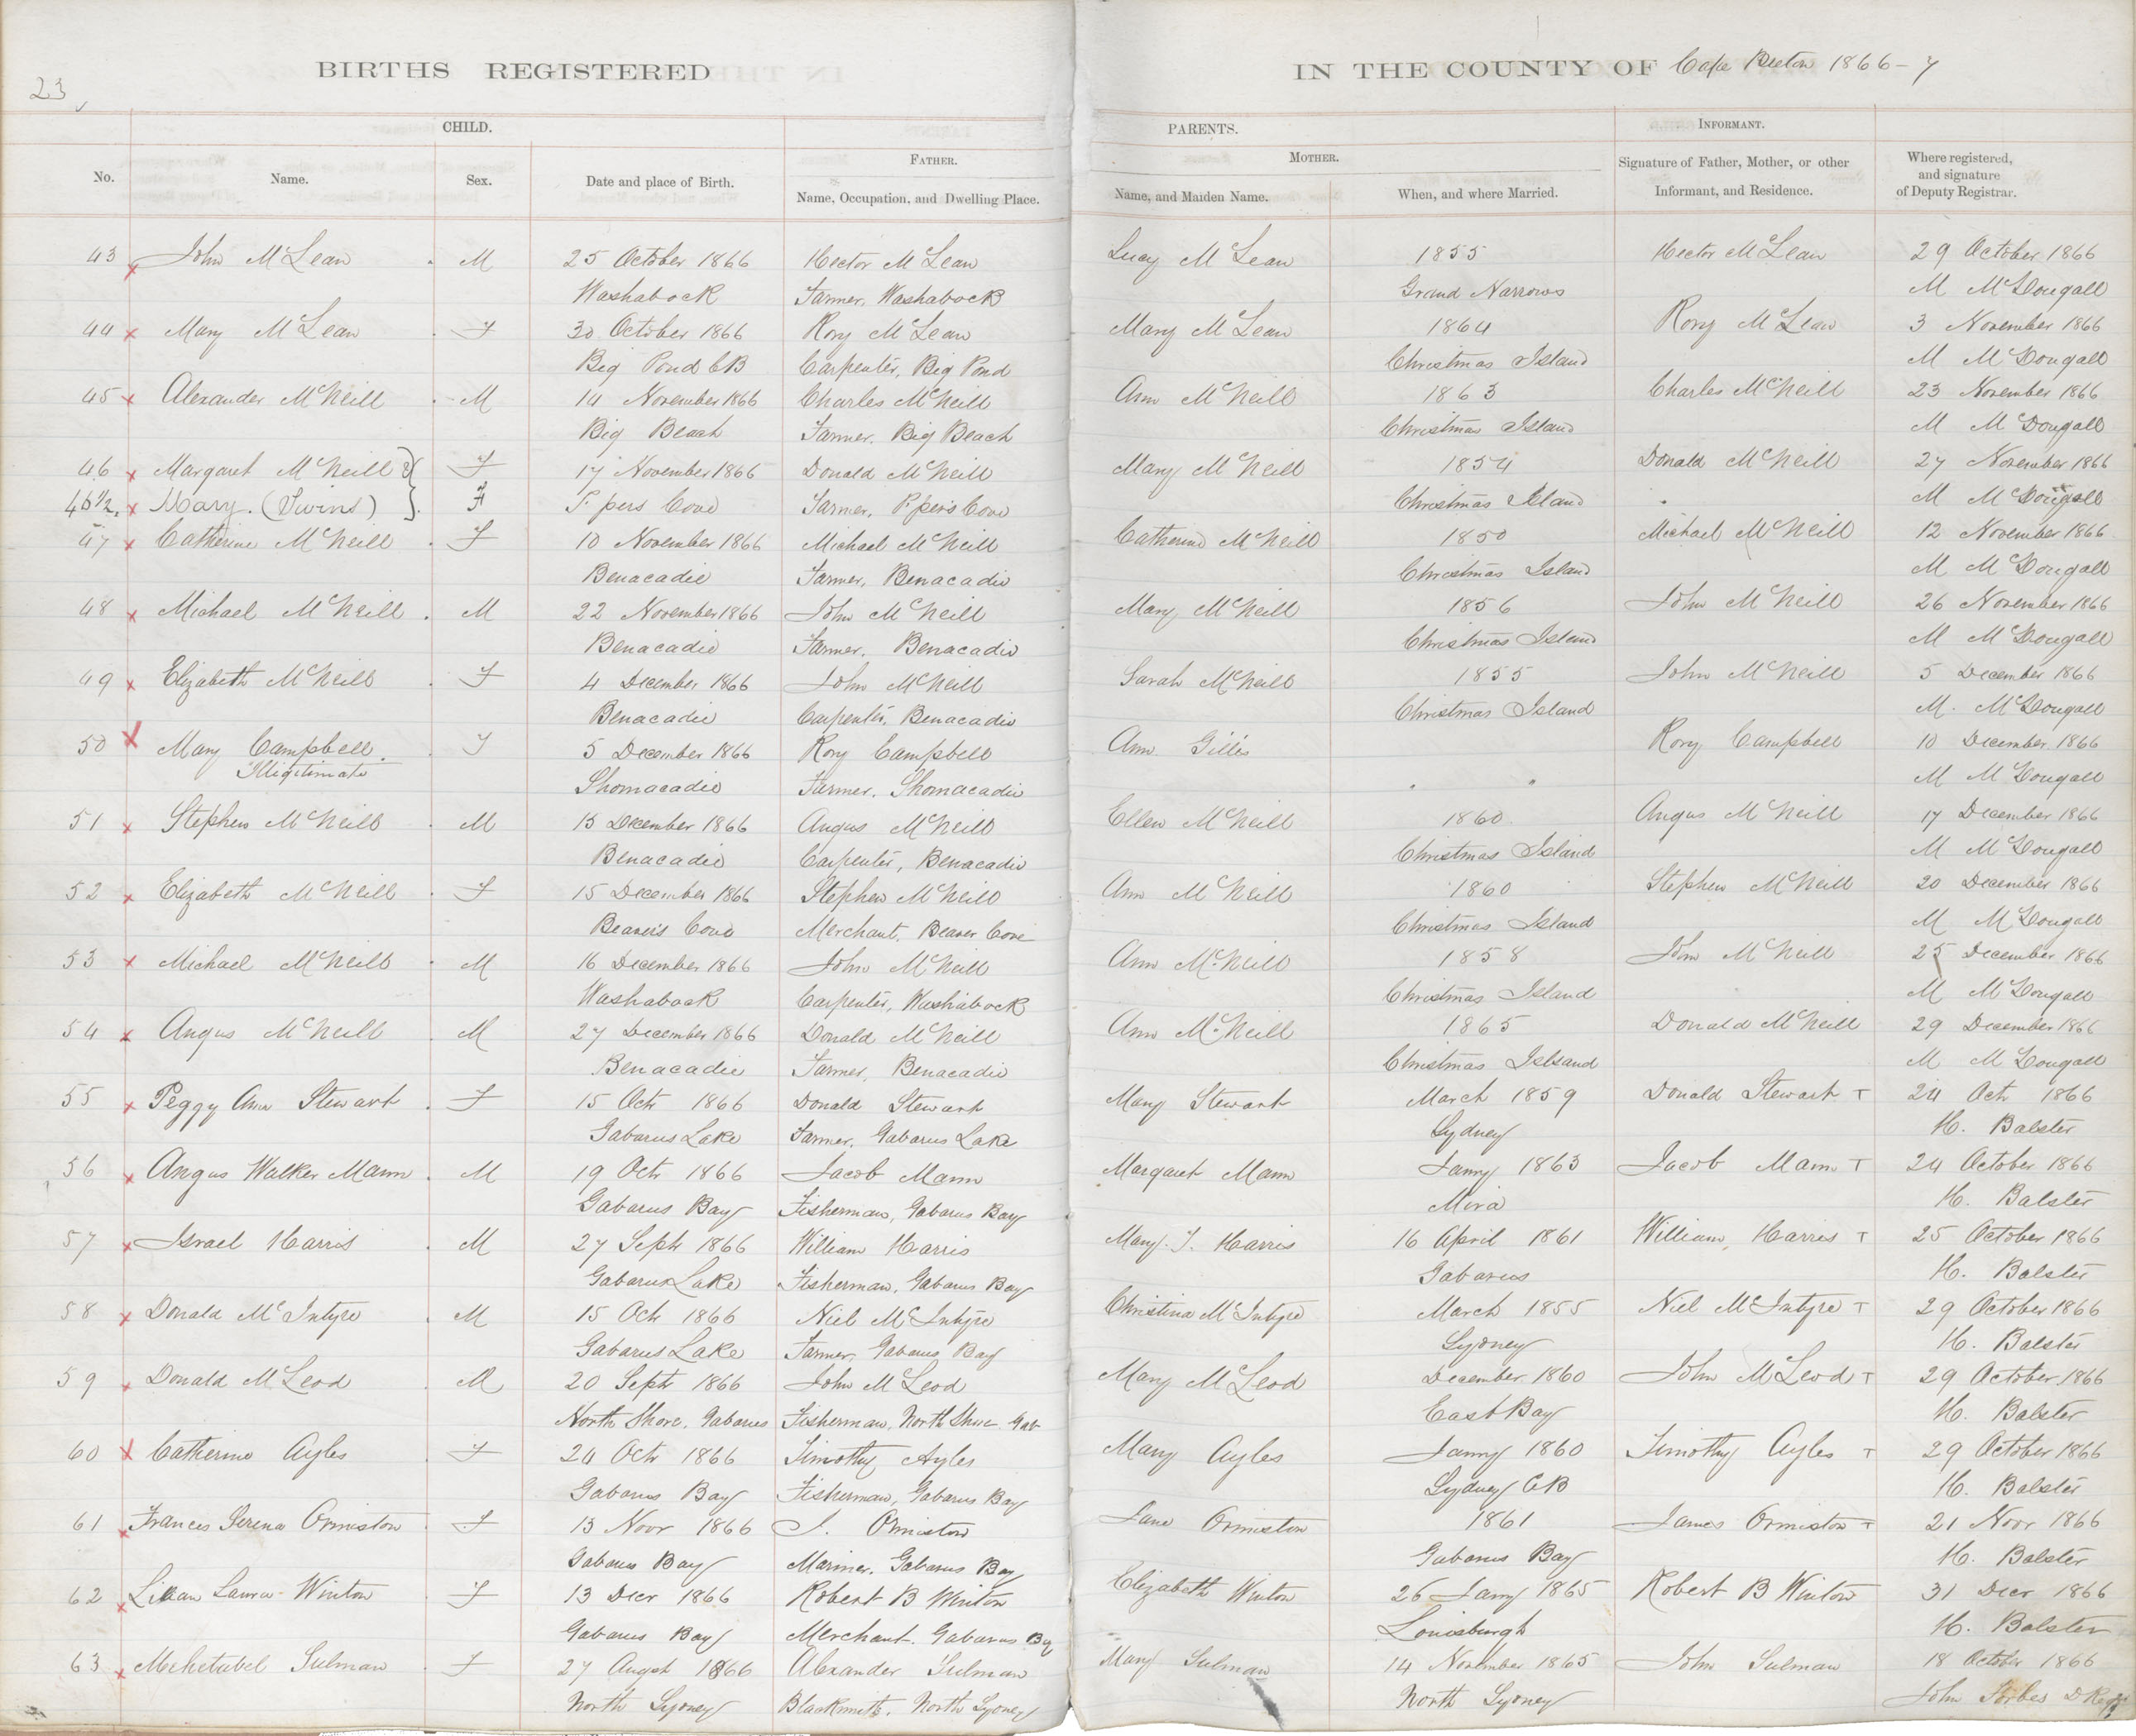 23
BIRTHS REGISTERED IN THE COUNTY OF Cape Breton 1866-7
CHILD. PARENTS. INFORMANT.
No. Name. Sex. Date and place of Birth. FATHER. Name, Occupation, and Dwelling Place. MOTHER. Name, and Maiden Name. When, and where Married. Signature of Father, Mother, or other Informant, and Residence. Where registered, and signature of Deputy Registrar.
43 x John McLean . M 25 October 1866 Hector McLean Lucy McLean 1855 Hector McLean 29 October 1866
Washabock Farmer, Washabock Grand Narrows M McDougall
44 x Mary McLean . F 30 October 1866 Rory McLean Mary McLean 1864 Rory McLean 3 November 1866
Big Pond CB Carpenter, Big Pond Christmas Island M McDougall
45 x Alexander McNeill . M 14 November 1866 Charles McNeill Ann McNeill 1863 Charles McNeill 23 November 1866
Big Beach Farmer, Big Beach Christmas Island M McDougall
46 x Margaret McNeill & F 17 November 1866 Donald McNeill Mary McNeill 1854 Donald McNeill 27 November 1866
46 1/2. x Mary. (Twins) F Pipers Cove Farmer, Pipers Cove Christmas Island M McDougall
47 x Catherine McNeill . F 10 November 1866 Michael McNeill Catherine McNeill 1850 Michael McNeill 12 November 1866
Benacadie Farmer, Benacadie Christmas Island M McDougall
48 x Michael McNeill . M 22 November 1866 John McNeill Mary McNeill 1856 John McNeill 26 November 1866
Benacadie Farmer, Benacadie Christmas Island M McDougall
49 x Elizabeth McNeill . F 4 December 1866 John McNeill Sarah McNeill 1855 John McNeill 5 December 1866
Benacadie Carpenter, Benacadie Christmas Island M. McDougall
50 x Mary Campbell . F 5 December 1866 Rory Campbell Ann Gillis Rory Campbell 10 December 1866
Illigitimate Shomacadie Farmer, Shomacadie " " M McDougall
51 x Stephen McNeill . M 13 December 1866 Angus McNeill Ellen McNeill 1860 Angus McNeill 17 December 1866
Benacadie Carpenter, Benacadie Christmas Island M McDougall
52 x Elizabeth McNeill . F 15 December 1866 Stephen McNeill Ann McNeill 1860 Stephen McNeill 20 December 1866
Beaver's Cove Merchant, Beaver Cove Christmas Island M McDougall
53 x Michael McNeill . M 16 December 1866 John McNeill Ann McNeill 1858 John McNeill 25 December 1866
Washaback Carpenter, Washaback Christmas Island M McDougall
54 x Angus McNeill . M 27 December 1866 Donald McNeill Ann McNeill 1865 Donald McNeill 29 December 1866
Benacadie Farmer, Benacadie Christmas Islsand M McDougall
55 x Peggy Ann Stewart . F 15 Octr 1866 Donald Stewart Mary Stewart March 1859 Donald Stewart T 24 Octr 1866
Gabarus Lake Farmer, Gabarus Lake Sydney H. Balster
56 x Angus Walker Mann . M 19 Octr 1866 Jacob Mann Margaret Mann Janny 1863 Jacob Mann T 24 October 1866
Gabarus Bay Fisherman, Gabarus Bay Mira H. Balster
57 x Israel Harris . M 27 Septr 1866 William Harris Mary. J. Harris 16 April 1861 William Harris T 25 October 1866
Gabarus Lake Fisherman, Gabarus Bay Gabarus H. Balster
58 x Donald McIntyre . M 15 Octr 1866 Niel McIntyre Christina McIntyre March 1855 Niel McIntyre T 29 October 1866
Gabarus Lake Farmer, Gabarus Bay Sydney H. Balster
59 x Donald McLeod . M 20 Septr 1866 John McLeod Mary McLeod December 1860 John McLeod T 29 October 1866
North Shore, Gabarus Fisherman, North Shore Gab East Bay H. Balster
60 x Catherine Ayles . F 24 Octr 1866 Timothy Ayles Mary Ayles Janny 1860 Timothy Ayles T 29 October 1866
Gabarus Bay Fisherman, Gabarus Bay Sydney CB H. Balster
61 x Frances Serena Ormiston . F 13 Novr 1866 J. Ormiston Jane Ormiston 1861 James Ormiston T 21 Novr 1866
Gabarus Bay Mariner, Gabarus Bay Gabarus Bay H. Balster
62 x Lilian Laura Winton . F 13 Decr 1866 Robert B Winton Elizabeth Winton 26 Janny 1865 Robert B Winton 31 Decr 1866
Gabarus Bay Merchant. Gabarus Bay Louisburgh H. Balster
63 x Mehetabel Sulman . F 27 Augst 1866 Alexander Sulman Mary Sulman 14 November 1865 John Sulman 18 October 1866
North Sydney Blacksmith, North Sydney North Sydney John Forbes D Regr